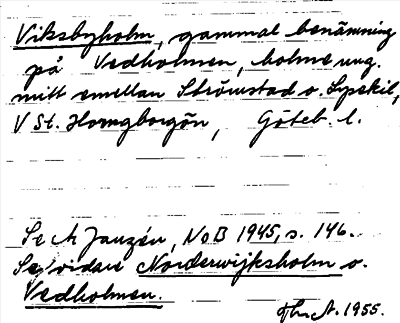 Viksbyholm, gammal benämning
på Vedholmen, holme ung.
mitt emellan Strömstad o. Lysekil,
V St. Hornborgön, Göteb. l.
Se A Janzén, NoB 1945, s. 146.
Se vidare Norderwijksholm o.
Vedholmen.
1955.